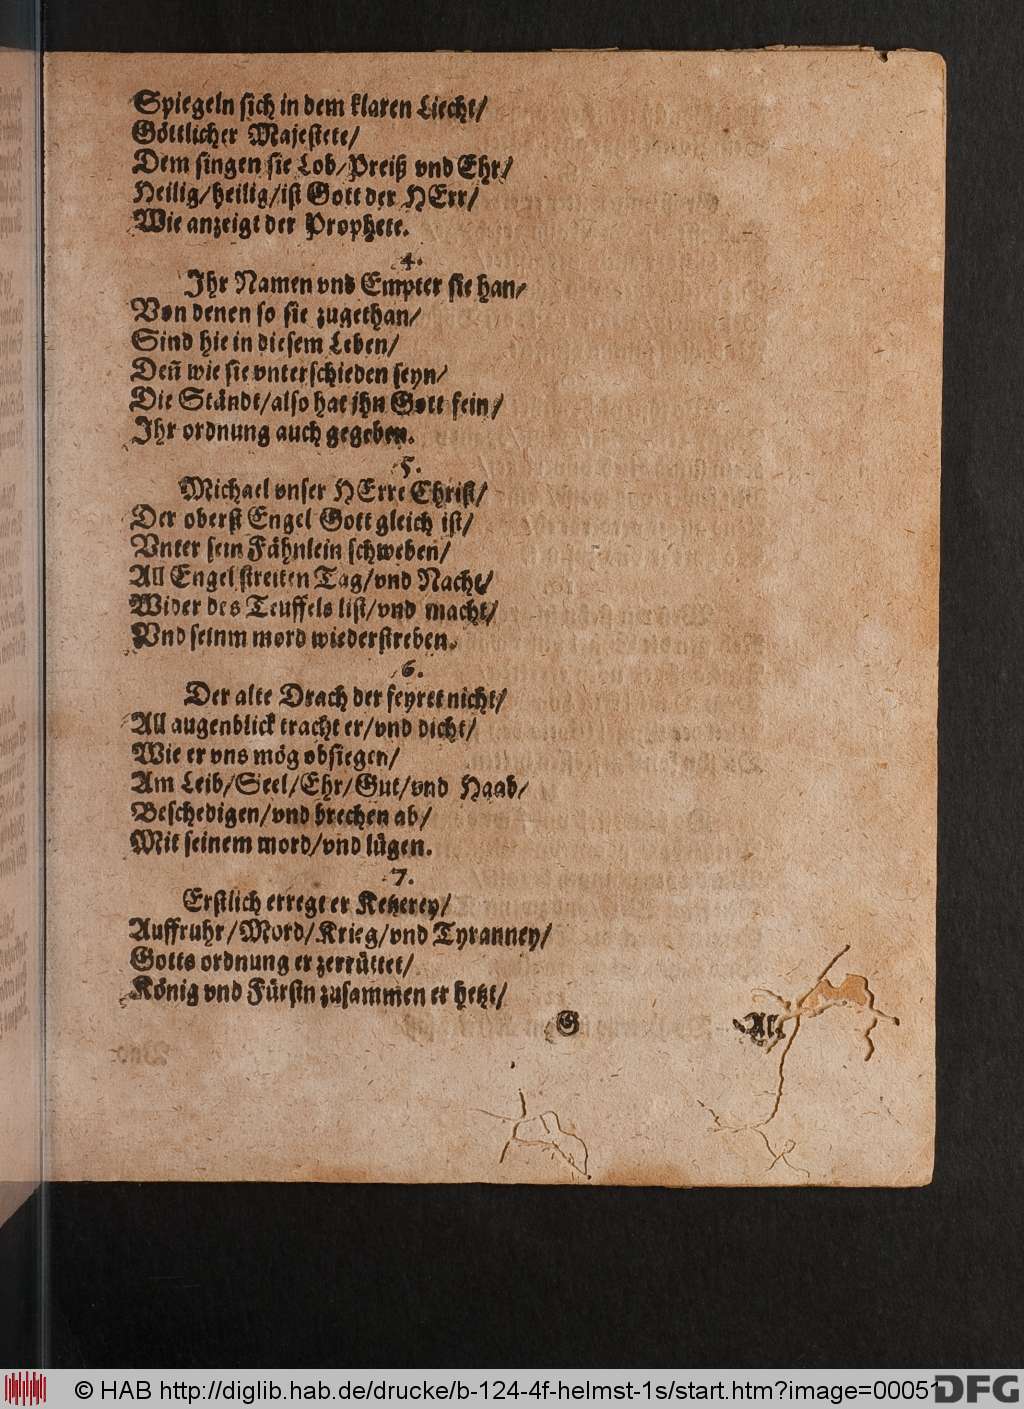 Spiegeln sich in dem klaren Liecht/
Göttlicher Majestete/
Dem singen sie Lob/Preiß vnd Ehr/
Heilig/heilig/ist Gott der HErr/
Wie anzeigt der Prophete.
4.
Ihr Namen vnd Empter sie han/
Von denen so sie zugethan/
Sind hie in diesem Leben/
Deñ wie sie vnterschieden seyn/
Die Ständt/also hat jhn Gott fein/
Ihr ordnung auch gegeben.
5.
Michael vnser HErre Christ/
Der oberst Engel Gott gleich ist/
Vnter sein Fähnlein schweben/
All Engel streiten Tag/vnd Nacht/
Wider des Teuffels list/vnd macht/
Vnd seinm mord wiederstreben.
6.
Der alte Drach der feyret nicht/
All augenblick tracht er/vnd dicht/
Wie er vns mög obsiegen/
Am Leib/Seel/Ehr/Gut/vnd Haab/
Beschedigen/vnd brechen ab/
Mit seinem mord/vnd lügen.
7.
Erstlich erregt er Ketzerey/
Auffruhr/Mord/Krieg/vnd Tyranney/
Gotts ordnung er zerrüttet/
König vnd Fürstn zusammen er hetzt/
G All
© HAB http://diglib.hab.de/drucke/b-124-4f-helmst-1s/start.htm?image=00051
DFG